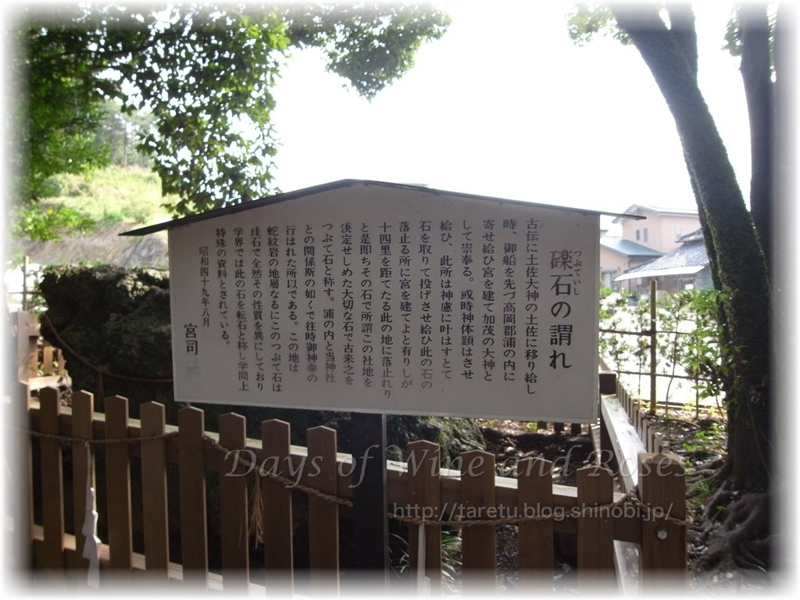 礫石の謂れ
つぶていし
古伝に土佐大神の土佐に移り給し
時、御船を先づ高岡郡浦の内に
寄せ給ひ宮を建て加茂の大神と
して崇奉る。或時神体顕はさせ
給ひ、此所は神慮に叶はすとて
石を取りて投げさせ給ひ此の石の
落止る所に宮を建てよと有りしが
十四里を距てたる此の地に落止れり
と是即ちその石で所謂この社地を
決定せしめた大切な石で古来之を
つぶて石と称す。浦の内と当神社
との関係斯の如くで往時御神幸の
行はれた所以である。この地は
蛇紋岩の地層なるにこのつぶて石は
珪石で全然その性質を異にしており
学界では此の石を転石と称し学問上
特殊の資料とされている。
昭和四十九年八月
宮司
Days of Wine and Roses
http://taretu.blog.shinobi.jp/